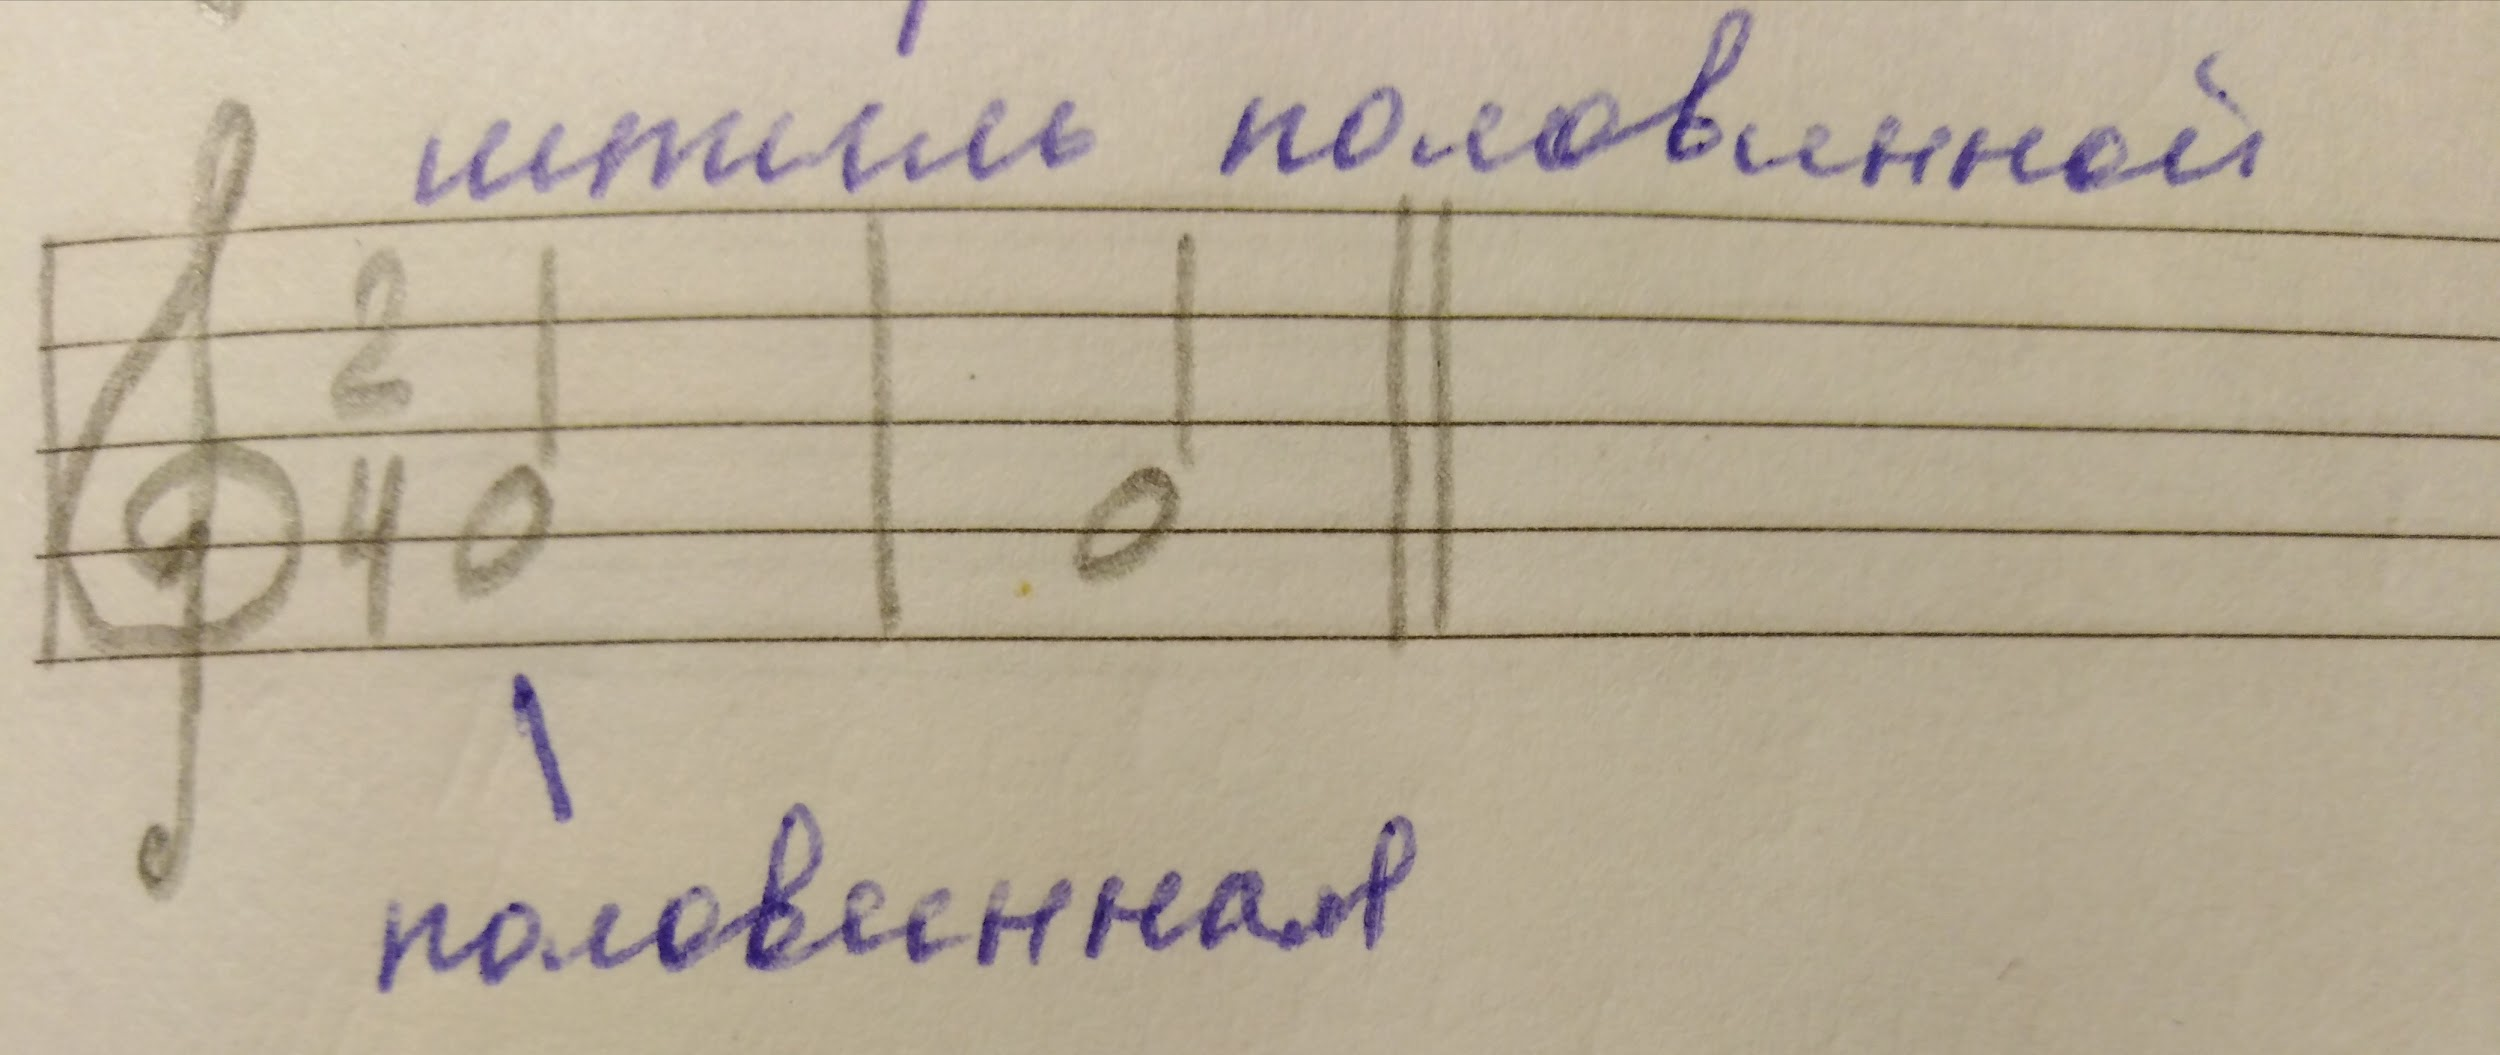 штиль половинной
2
4
половинная